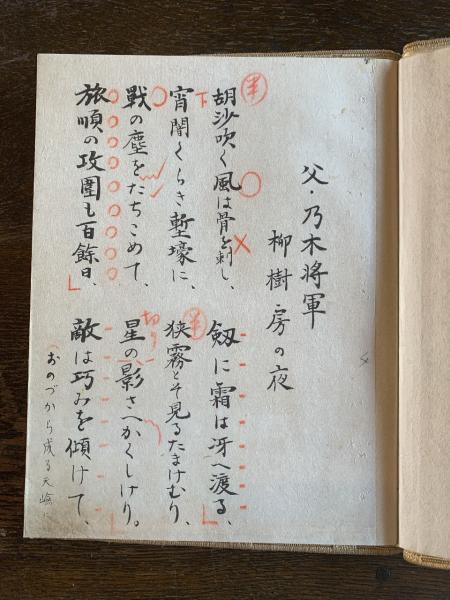 父・乃木将軍
柳樹房の夜
胡沙吹く風は骨を刺し、
劔に霜は冴へ渡る、
宵闇くらき塹壕に、
狭霧とぞ見るたまけむり、
戰の塵をたちこめて、
星の影さへかくしけり。
旅順の攻圍も百餘日、
敵は巧みを傾けて、
(おのづから成る天嶮に
半
下
半
切